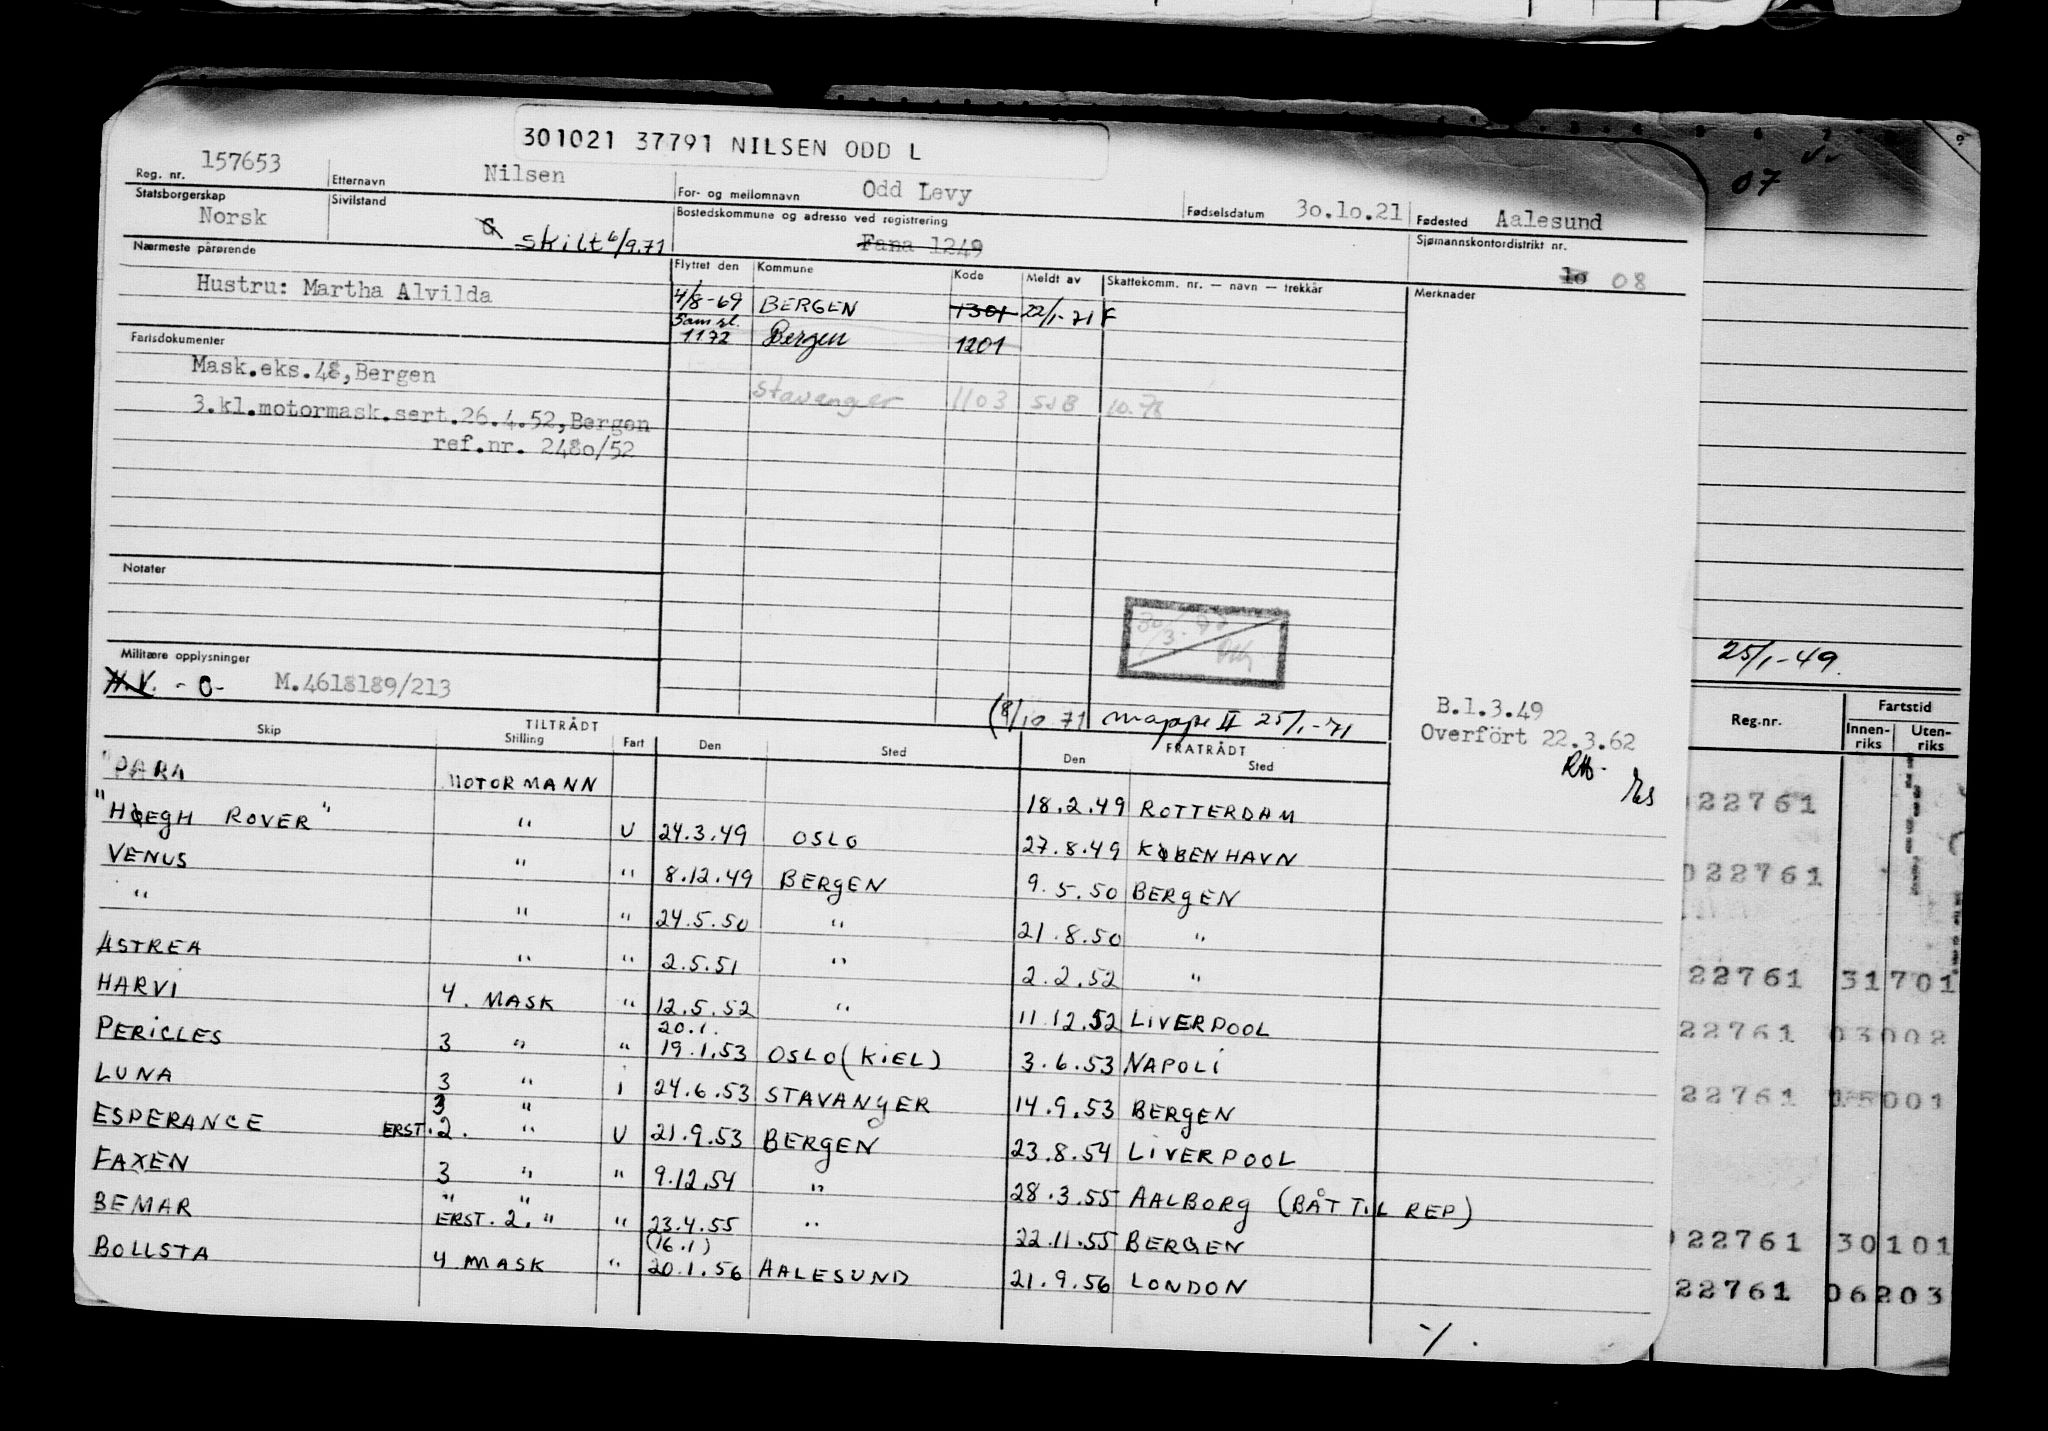 301021 37791 NILSEN ODD L
Reg. nr. 157653 Etternavn Nilsen For- og mellomnavn Odd Levy Fødselsdatum 30.10.21 Fødested Aalesund
Statsborgerskap Norsk Sivilstand G skilt 6/9.71 Bostedskommune og adresse ved registrering Fana 1249 Sjømannskontordistrikt nr. 10 08
Nærmeste pårørende
Hustru: Martha Alvilda
Flyttet den Kommune Kode Meldt av Skattekomm. nr. — navn — trekkår Merknader
4/8-69 BERGEN 1301 22/1-71 F
Sam sl.
1172 Bergen 1201
Stavanger 1103 SJB 10.78
Farisdokumenter
Mask.eks.48,Bergen
3.kl.motormask.sert.26.4.52,Bergen
ref.nr. 2480/52
Notater
Militære opplysninger
H.V. - O- M.4618189/213
30/3
(8/10 71 mappe II 25/1-71
B.1.3.49
Overfört 22.3.62
TILTRÅDT FRATRÅDT
Skip Stilling Fart Den Sted Den Sted
"PARA MOTORMANN 18.2.49 ROTTERDAM
"HØEGH ROVER" " U 24.3.49 OSLO 27.8.49 KØBENHAVN
VENUS " " 8.12.49 BERGEN 9.5.50 BERGEN
" " " 24.5.50 " 21.8.50 "
ASTREA " " 2.5.51 " 2.2.52 "
HARVI 4. MASK " 12.5.52 " 11.12.52 LIVERPOOL
20.1.
PERICLES 3 " " 19.1.53 OSLO (KIEL) 3.6.53 NAPOLI
LUNA 3 " i 24.6.53 STAVANGER 14.9.53 BERGEN
3 "
ESPERANCE ERST. 2. " U 21.9.53 BERGEN 23.8.54 LIVERPOOL
FAXEN 3 " " 9.12.54 " 28.3.55 AALBORG (BÅT TIL REP)
" "
BEMAR ERST. 2. " " 23.4.55 " 22.11.55 BERGEN
(16.1)
BOLLSTA 4 MASK " 20.1.56 AALESUND 21.9.56 LONDON
07
25/1-49.
Reg.nr. Fartstid
Innen-riks Uten-riks
022761
022761
22761 31701
22761 03002
22761 15001
022761 30101
22761 06203